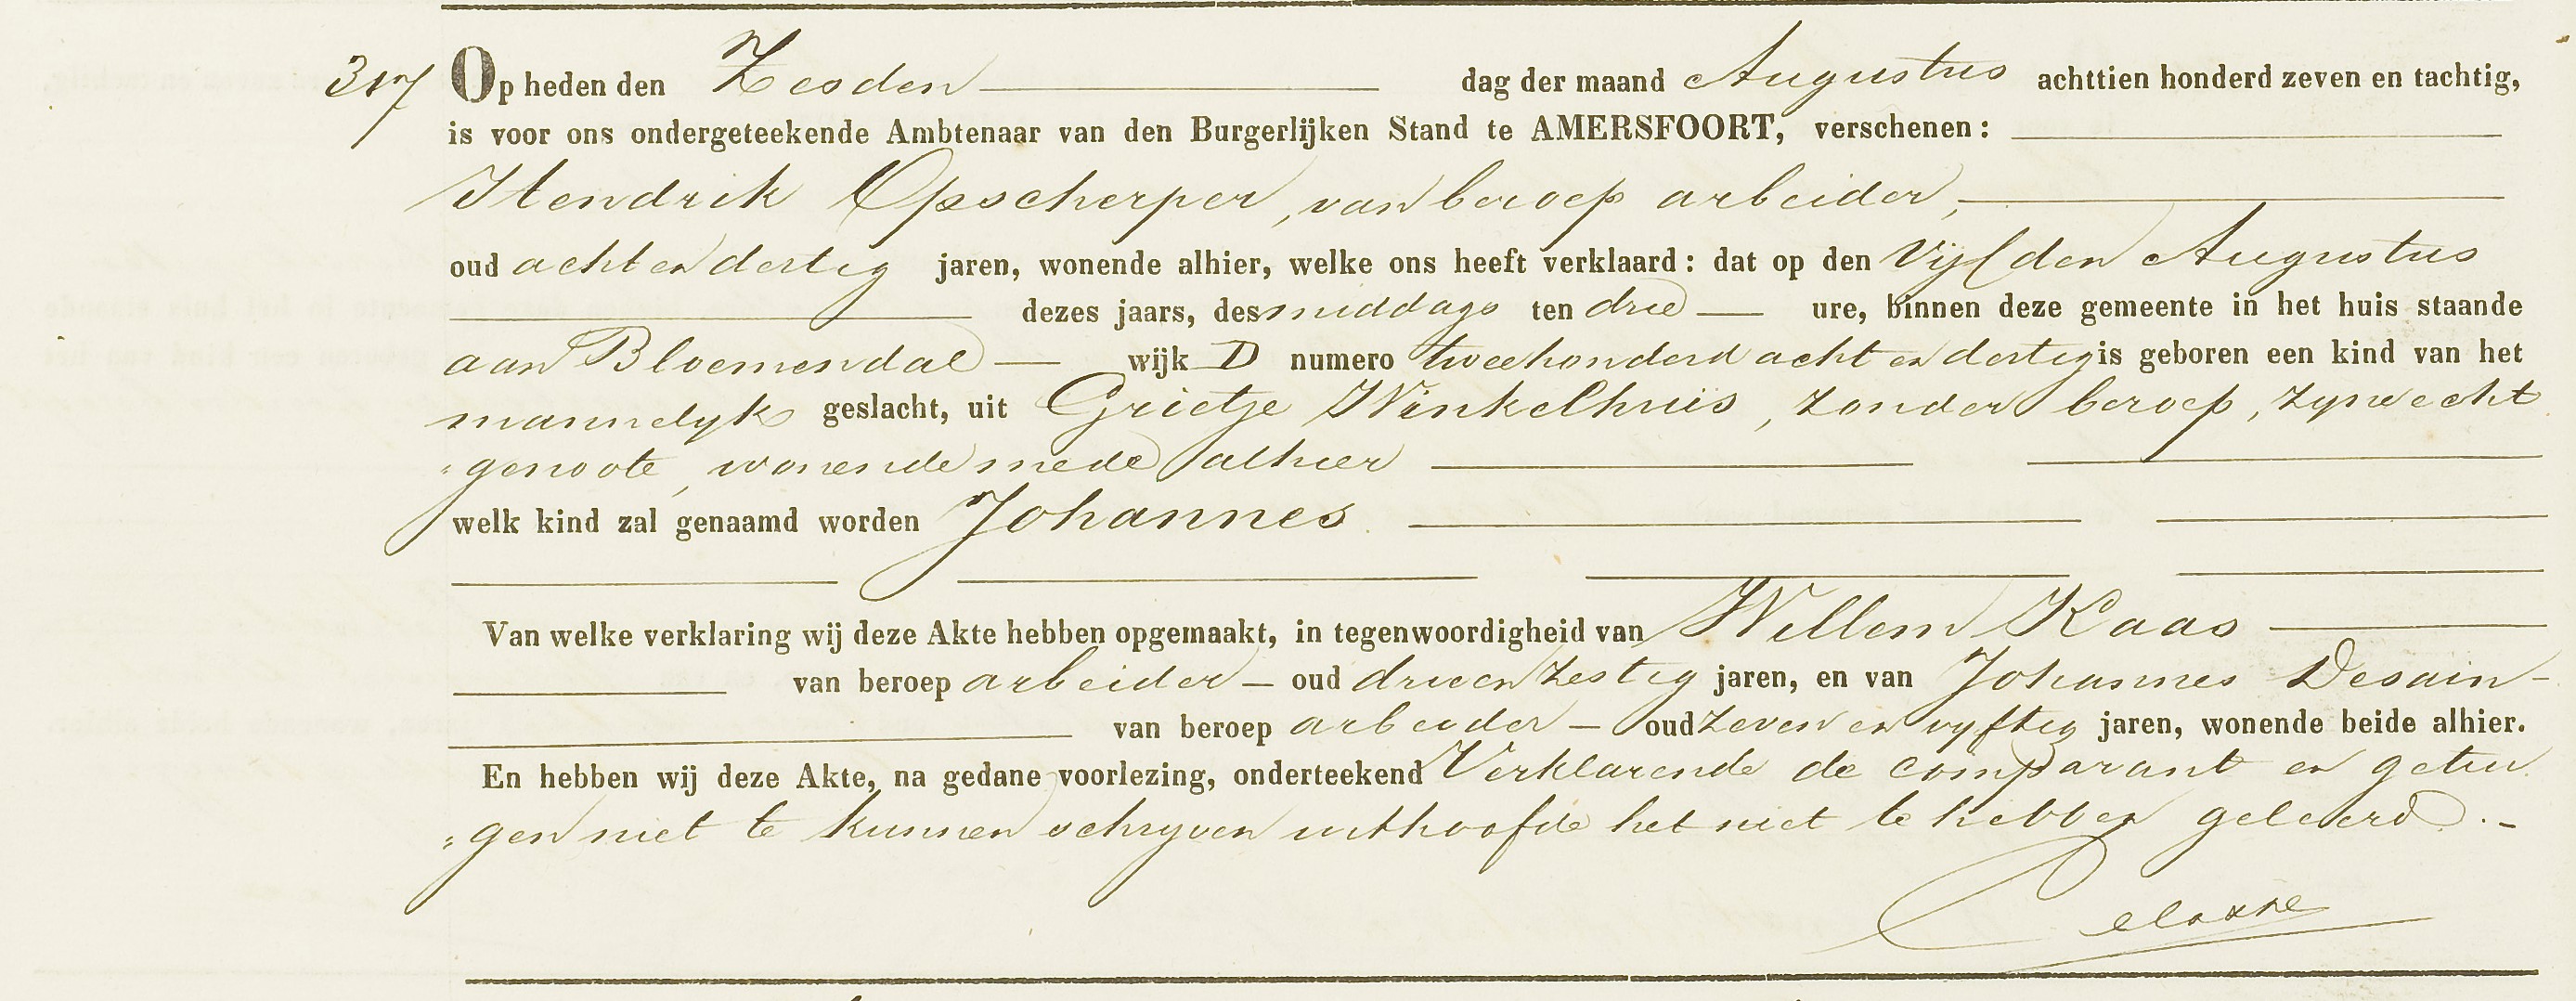 317 Op heden den Zesden dag der maand Augustus achttien honderd zeven en tachtig,
is voor ons ondergeteekende Ambtenaar van den Burgerlijken Stand te AMERSFOORT, verschenen:
Hendrik Opscherper, van beroep arbeider,
oud acht en dertig jaren, wonende alhier, welke ons heeft verklaard: dat op den Vijfden Augustus
dezes jaars, des middags ten drie ure, binnen deze gemeente in het huis staande
aan Bloemendal wijk D numero tweehonderd acht en dertig is geboren een kind van het
mannelijk geslacht, uit Grietje Winkelhuis, zonder beroep, zijne echt
"genoote, wonende mede alhier
welk kind zal genaamd worden Johannes.
Van welke verklaring wij deze Akte hebben opgemaakt, in tegenwoordigheid van Willem Kaas
van beroep arbeider oud drie en zestig jaren, en van Johannes Desain
van beroep arbeider oud zeven en vijftig jaren, wonende beide alhier.
En hebben wij deze Akte, na gedane voorlezing, onderteekend Verklarende de comparant en getui
"gen niet te kunnen schrijven uithoofde het niet te hebben geleerd.